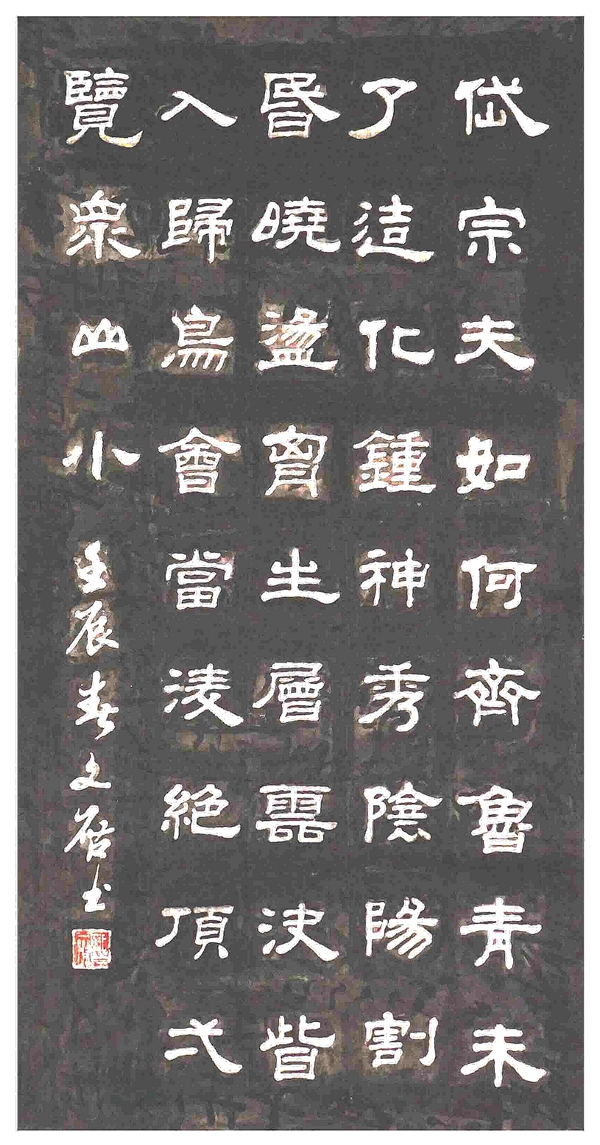 岱宗夫如何齊魯青未
了造化鍾神秀陰陽割
昬曉盪胷生層雲決眥
入歸鳥會當淩絕頂弌
覽衆山小
壬辰春文啓书